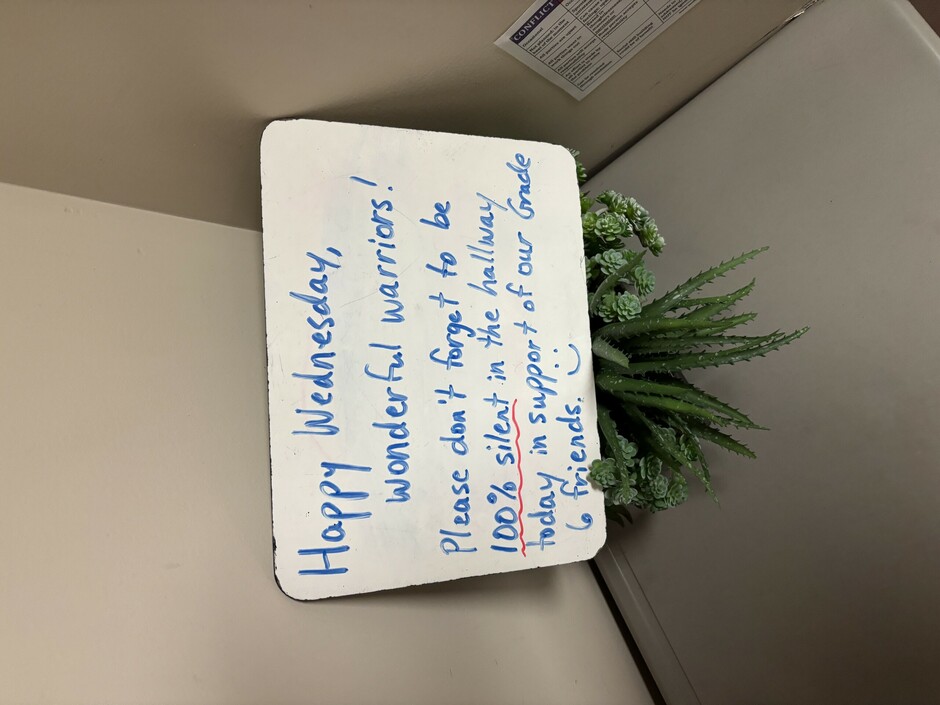 Happy Wednesday,
wonderful warriors!
Please don't forget to be
100% silent in the hallway
today in support of our Grade
6 friends. :)
CONFLICT